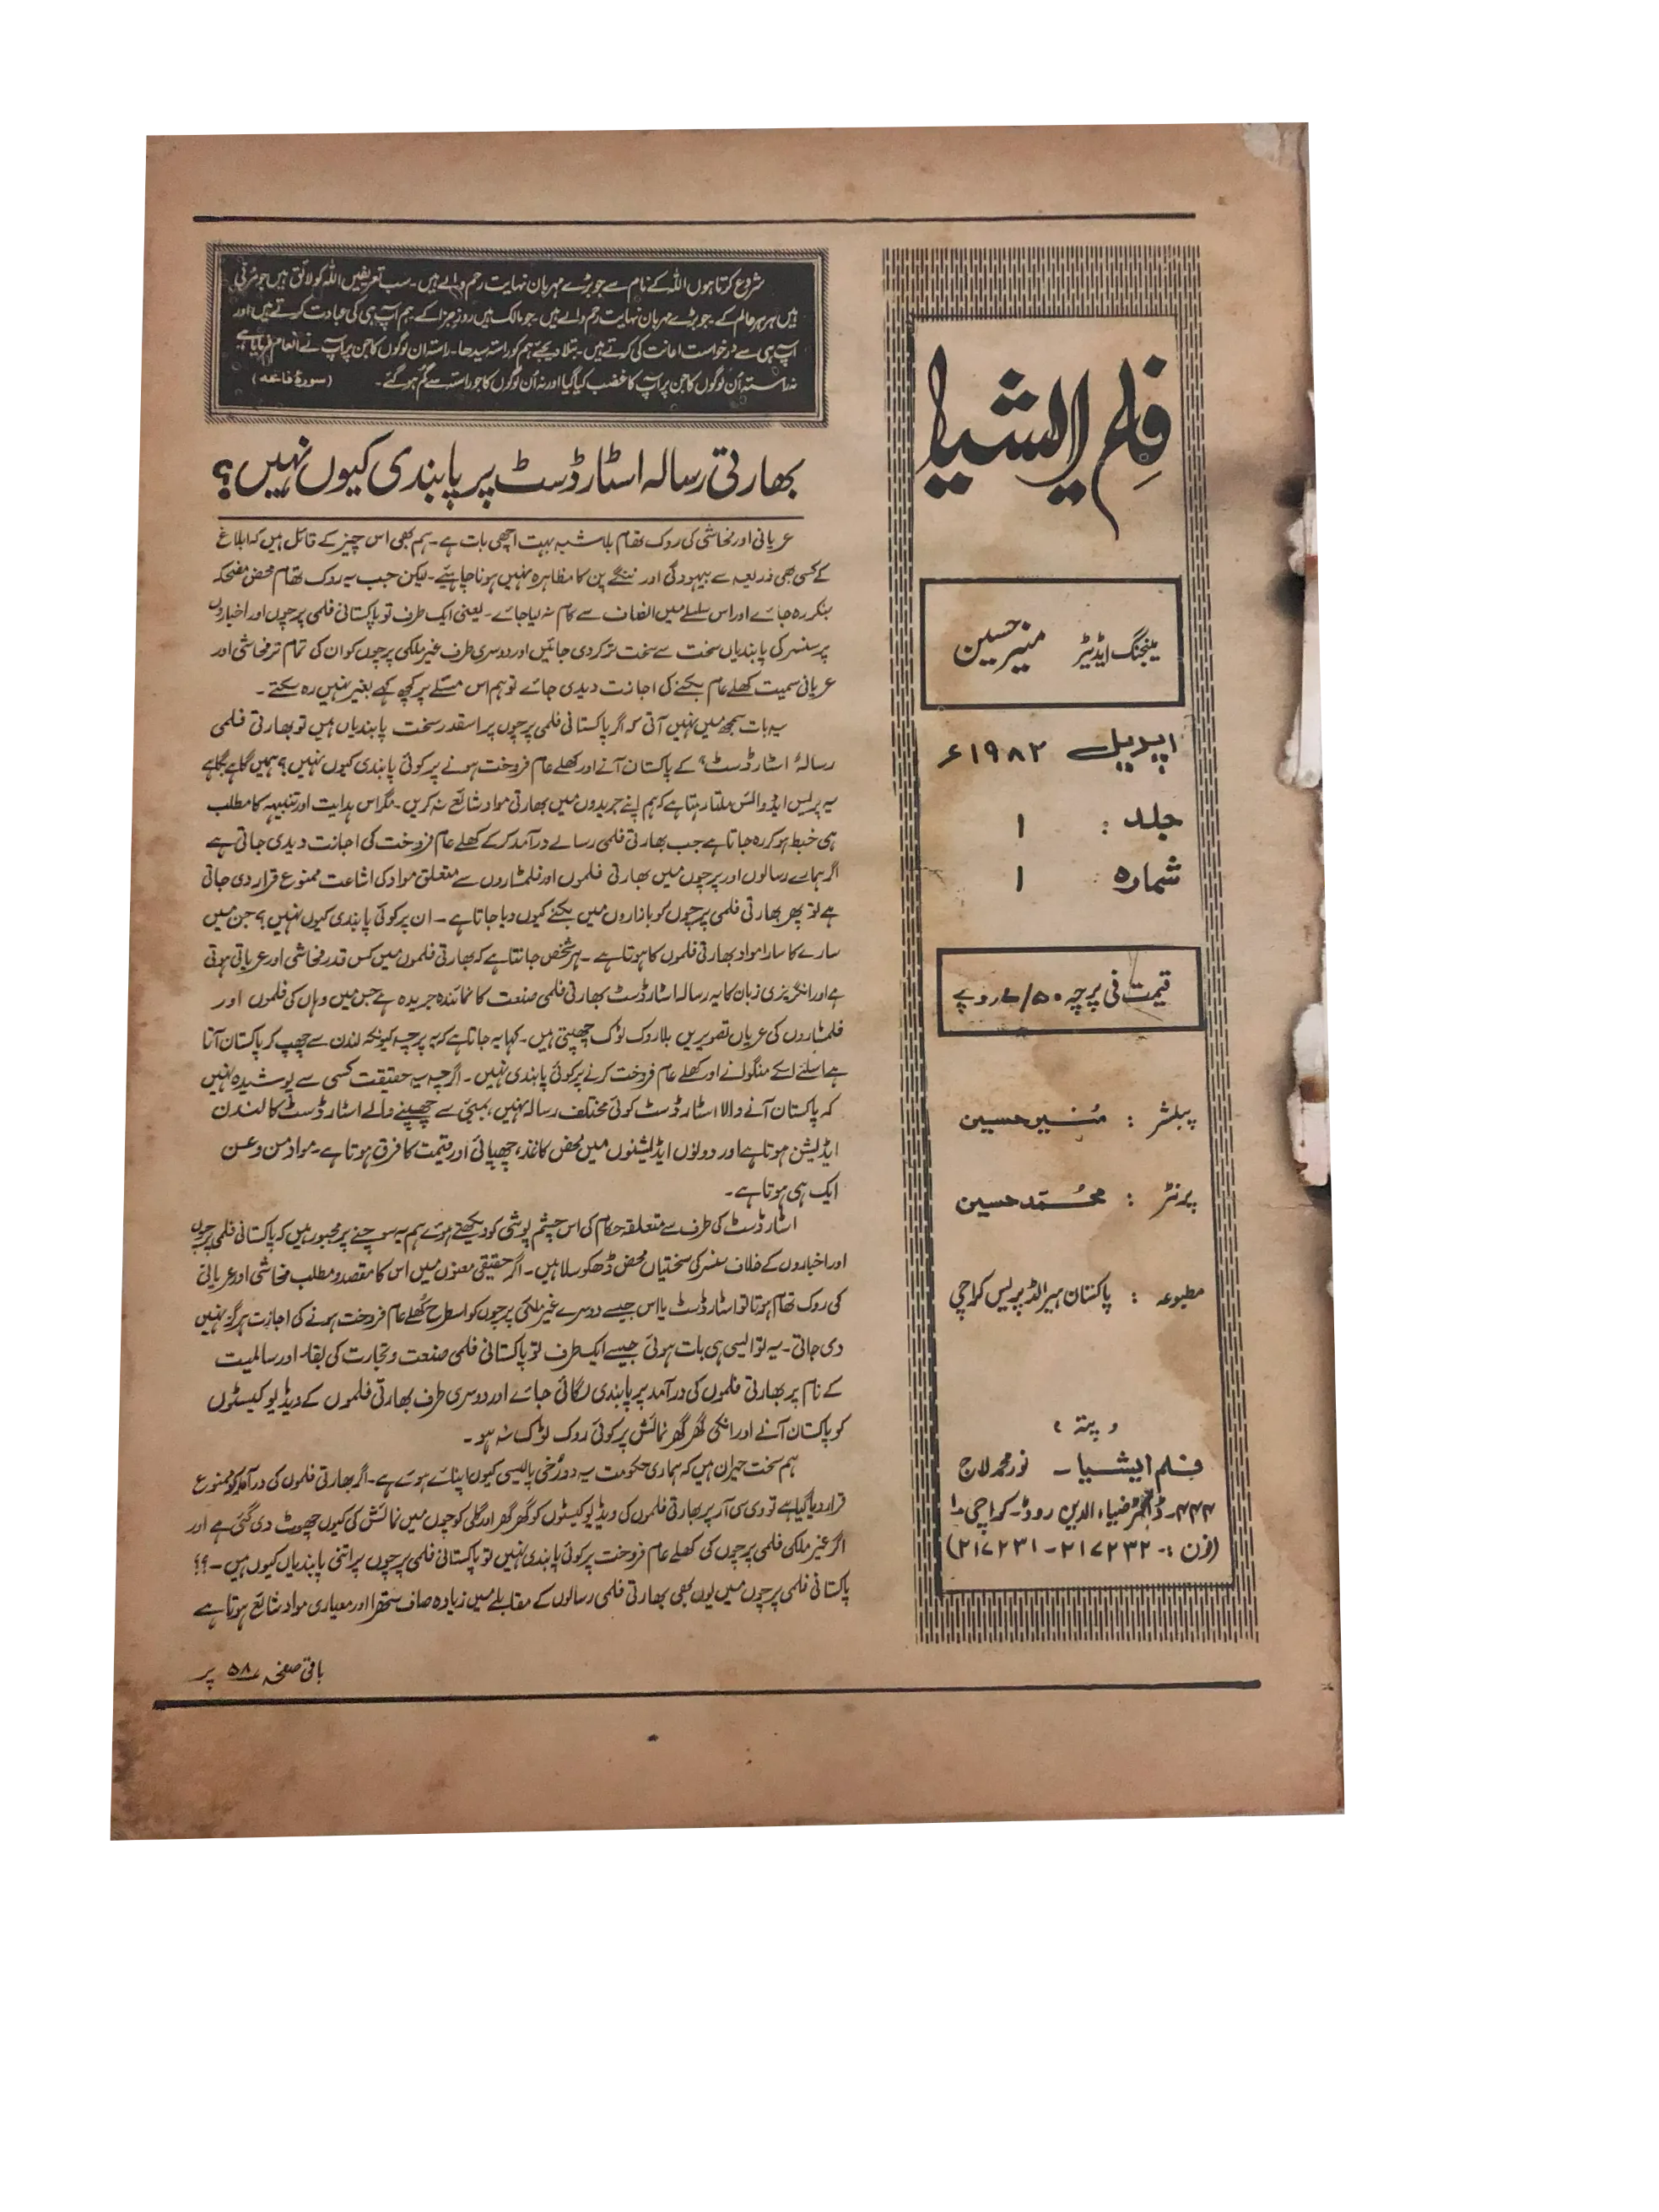 فلم ایشیا
مینجنگ ایڈیٹر منیر حسین
اپریل ۱۹۸۲ء
جلد : ۱
شمارہ : ۱
قیمت فی پرچہ ۷/۵۰ روپے
پبلشر : مُنیر حسین
پرنٹر : محمّد حسین
مطبوعہ : پاکستان ہیرالڈ پریس کراچی
، پتہ ،
فلم ایشیا ۔ نور محمد لاج
۴۲۲۔ ڈاکٹر ضیاء الدین روڈ۔ کراچی ۱
(فون :- ۲۱۷۲۳۲ - ۲۱۷۲۳۱)
شروع کرتا ہوں اللہ کے نام سے جو بڑے مہربان نہایت رحم والے ہیں۔ سب تعریفیں اللہ کو لائق ہیں جو مُربّی
ہیں ہر ہر عالم کے۔ جو بڑے مہربان نہایت رحم والے ہیں۔ جو مالک ہیں روزِ جزا کے۔ ہم آپ ہی کی عبادت کرتے ہیں اور
آپ ہی سے درخواست اعانت کی کرتے ہیں۔ بتلا دیجئے ہم کو راستہ سیدھا۔ راستہ ان لوگوں کا جن پر آپ نے انعام فرمایا ہے
نہ راستہ اُن لوگوں کا جن پر آپ کا غضب کیا گیا اور نہ اُن لوگوں کا جو راستہ سے گم ہو گئے۔ (سورۂ فاتحہ)
بھارتی رسالہ اسٹارڈسٹ پر پابندی کیوں نہیں؟
عریانی اور فحاشی کی روک تھام بلاشبہ بہت اچھی بات ہے۔ ہم بھی اس چیز کے قائل ہیں کہ ابلاغ
کے کسی بھی ذریعہ سے بیہودگی اور ننگے پن کا مظاہرہ نہیں ہونا چاہئیے۔ لیکن جب یہ روک تھام محض مضحکہ
بنکر رہ جائے اور اس سلسلے میں انصاف سے کام نہ لیا جائے۔ یعنی ایک طرف تو پاکستانی فلمی پرچوں اور اخباروں
پر سنسر کی پابندیاں سخت سے سخت تر کر دی جائیں اور دوسری طرف غیر ملکی پرچوں کو ان کی تمام تر فحاشی اور
عریانی سمیت کھلے عام بکنے کی اجازت دیدی جائے تو ہم اس مسئلے پر کچھ کہے بغیر نہیں رہ سکتے۔
یہ بات سمجھ میں نہیں آتی کہ اگر پاکستانی فلمی پرچوں پر اسقدر سخت پابندیاں ہیں تو بھارتی فلمی
رسالۂ اسٹارڈسٹ، کے پاکستان آنے اور کھلے عام فروخت ہونے پر کوئی پابندی کیوں نہیں؟ ہمیں گاہے بگاہے
یہ پریس ایڈوائس ملتا رہتا ہے کہ ہم اپنے جریدوں میں بھارتی مواد شائع نہ کریں۔ مگر اس ہدایت اور تنبیہہ کا مطلب
ہی خبط ہو کر رہ جاتا ہے جب بھارتی فلمی رسالے درآمد کر کے کھلے عام فروخت کی اجازت دیدی جاتی ہے
اگر ہمارے رسالوں اور پرچوں میں بھارتی فلموں اور فلمسٹاروں سے متعلق مواد کی اشاعت ممنوع قرار دی جاتی
ہے تو پھر بھارتی فلمی پرچوں کو بازاروں میں بکنے کیوں دیا جاتا ہے۔ ان پر کوئی پابندی کیوں نہیں؟ جن میں
سارے کا سارا مواد بھارتی فلموں کا ہوتا ہے۔ ہر شخص جانتا ہے کہ بھارتی فلموں میں کس قدر فحاشی اور عریانی ہوتی
ہے اور انگریزی زبان کا یہ رسالہ اسٹارڈسٹ بھارتی فلمی صنعت کا نمائندہ جریدہ ہے جس میں وہاں کی فلموں اور
فلمسٹاروں کی عریاں تصویریں بلا روک ٹوک چھپتی ہیں۔ کہا یہ جاتا ہے کہ یہ پرچہ کیونکہ لندن سے چھپ کر پاکستان آتا
ہے اسلئے اسکے منگوانے اور کھلے عام فروخت کرنے پر کوئی پابندی نہیں۔ اگرچہ یہ حقیقت کسی سے پوشیدہ نہیں
کہ پاکستان آنے والا اسٹارڈسٹ کوئی مختلف رسالہ نہیں، بمبئی سے چھپنے والے اسٹارڈسٹ کا لندن
ایڈیشن ہوتا ہے اور دونوں ایڈیشنوں میں محض کاغذ، چھپائی اور قیمت کا فرق ہوتا ہے۔ مواد من و عن
ایک ہی ہوتا ہے۔
اسٹارڈسٹ کی طرف سے متعلقہ حکام کی اس چشم پوشی کو دیکھتے ہوئے ہم یہ سوچنے پر مجبور ہیں کہ پاکستانی فلمی پرچوں
اور اخباروں کے خلاف سنسر کی سختیاں محض ڈھکوسلا ہیں۔ اگر حقیقی معنوں میں اس کا مقصد و مطلب فحاشی اور عریانی
کی روک تھام ہوتا تو اسٹارڈسٹ یا اس جیسے دوسرے غیر ملکی پرچوں کو اسطرح کُھلے عام فروخت ہونے کی اجازت ہرگز نہیں
دی جاتی۔ یہ تو ایسی ہی بات ہوئی جیسے ایک طرف تو پاکستانی فلمی صنعت و تجارت کی بقا اور سالمیت
کے نام پر بھارتی فلموں کی درآمد پر پابندی لگائی جائے اور دوسری طرف بھارتی فلموں کے ویڈیو کیسٹوں
کو پاکستان آنے اور انکی گھر گھر نمائش پر کوئی روک ٹوک نہ ہو۔
ہم سخت حیران ہیں کہ ہماری حکومت یہ دو رُخی پالیسی کیوں اپنائے ہوئے ہے۔ اگر بھارتی فلموں کی درآمد کو ممنوع
قرار دیا گیا ہے تو وی سی آر پر بھارتی فلموں کی ویڈیو کیسٹوں کو گھر گھر اور گلی کوچوں میں نمائش کی کیوں چھوٹ دی گئی ہے اور
اگر غیر ملکی فلمی پرچوں کی کھلے عام فروخت پر کوئی پابندی نہیں تو پاکستانی فلمی پرچوں پر اتنی پابندیاں کیوں ہیں۔؟؟
پاکستانی فلمی پرچوں میں یوں بھی بھارتی فلمی رسالوں کے مقابلے میں زیادہ صاف ستھرا اور معیاری مواد شائع ہوتا ہے
باقی صفحہ ۵۸ پر